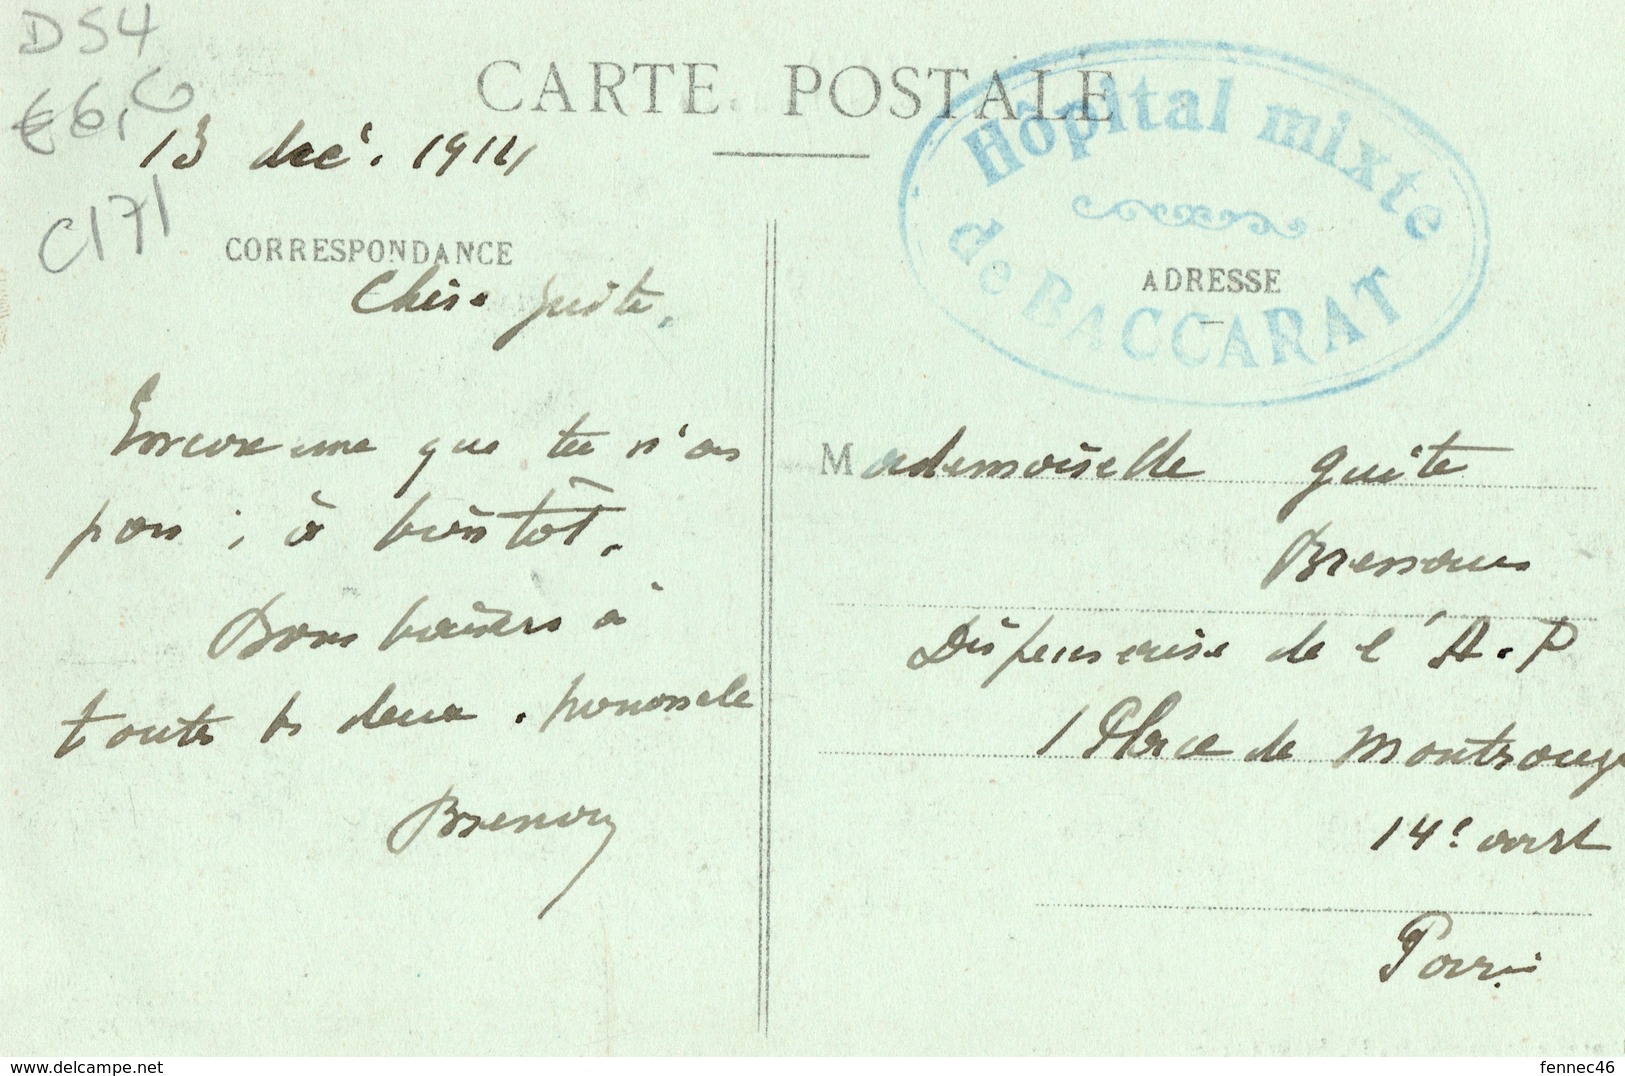 D54
€6,6
CARTE POSTALE
13 dec. 1914
C171
Hôpital mixte
de BACCARAT
CORRESPONDANCE
ADRESSE
Chère Guite.
Encore une que tu n'as
pas ; à bientôt.
Bons baisers à
toutes les deux.
Mademoiselle Guite
Dispensaire de l'A.P
1 Place de Montrouge
14e arrt
Paris
www.delcampe.net
fennec46